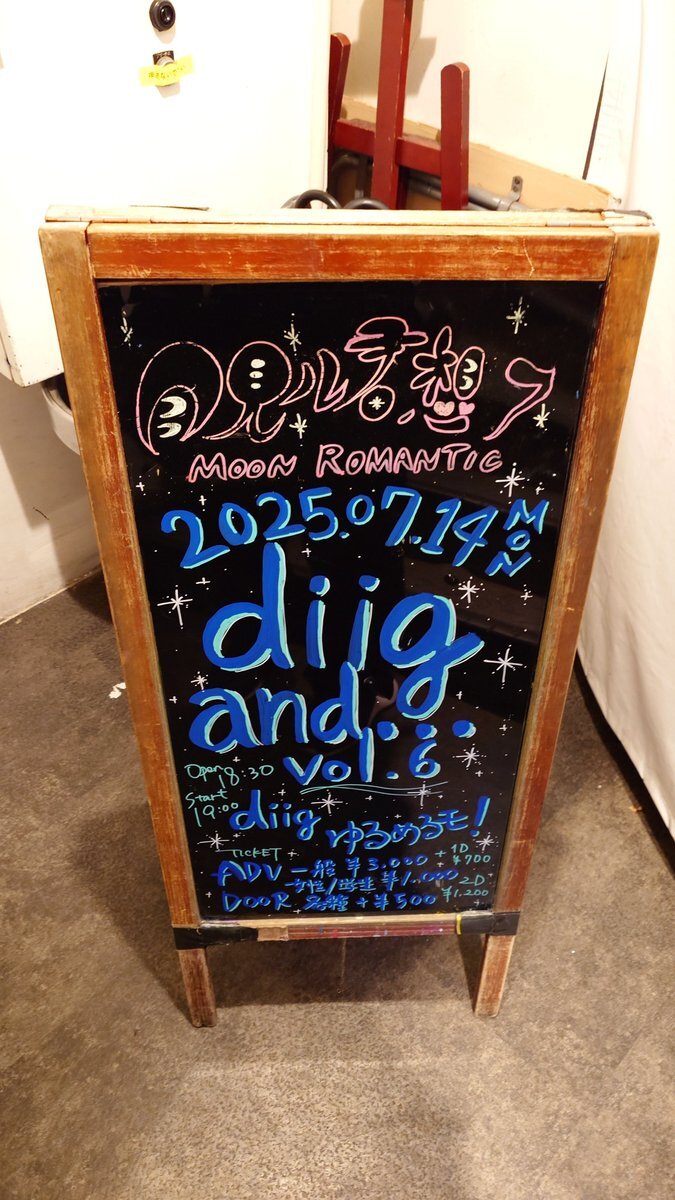 月見ル君想フ
MOON ROMANTIC
2025.07.14 MON
diig
and...
vol.6
Open 18:30
Start 19:00
diig ゆるめるモ!
TICKET
ADV 一般 ¥3.000 +1D ¥700
女性/学生 ¥1.000 2D ¥1.200
DOOR 各種 +¥500